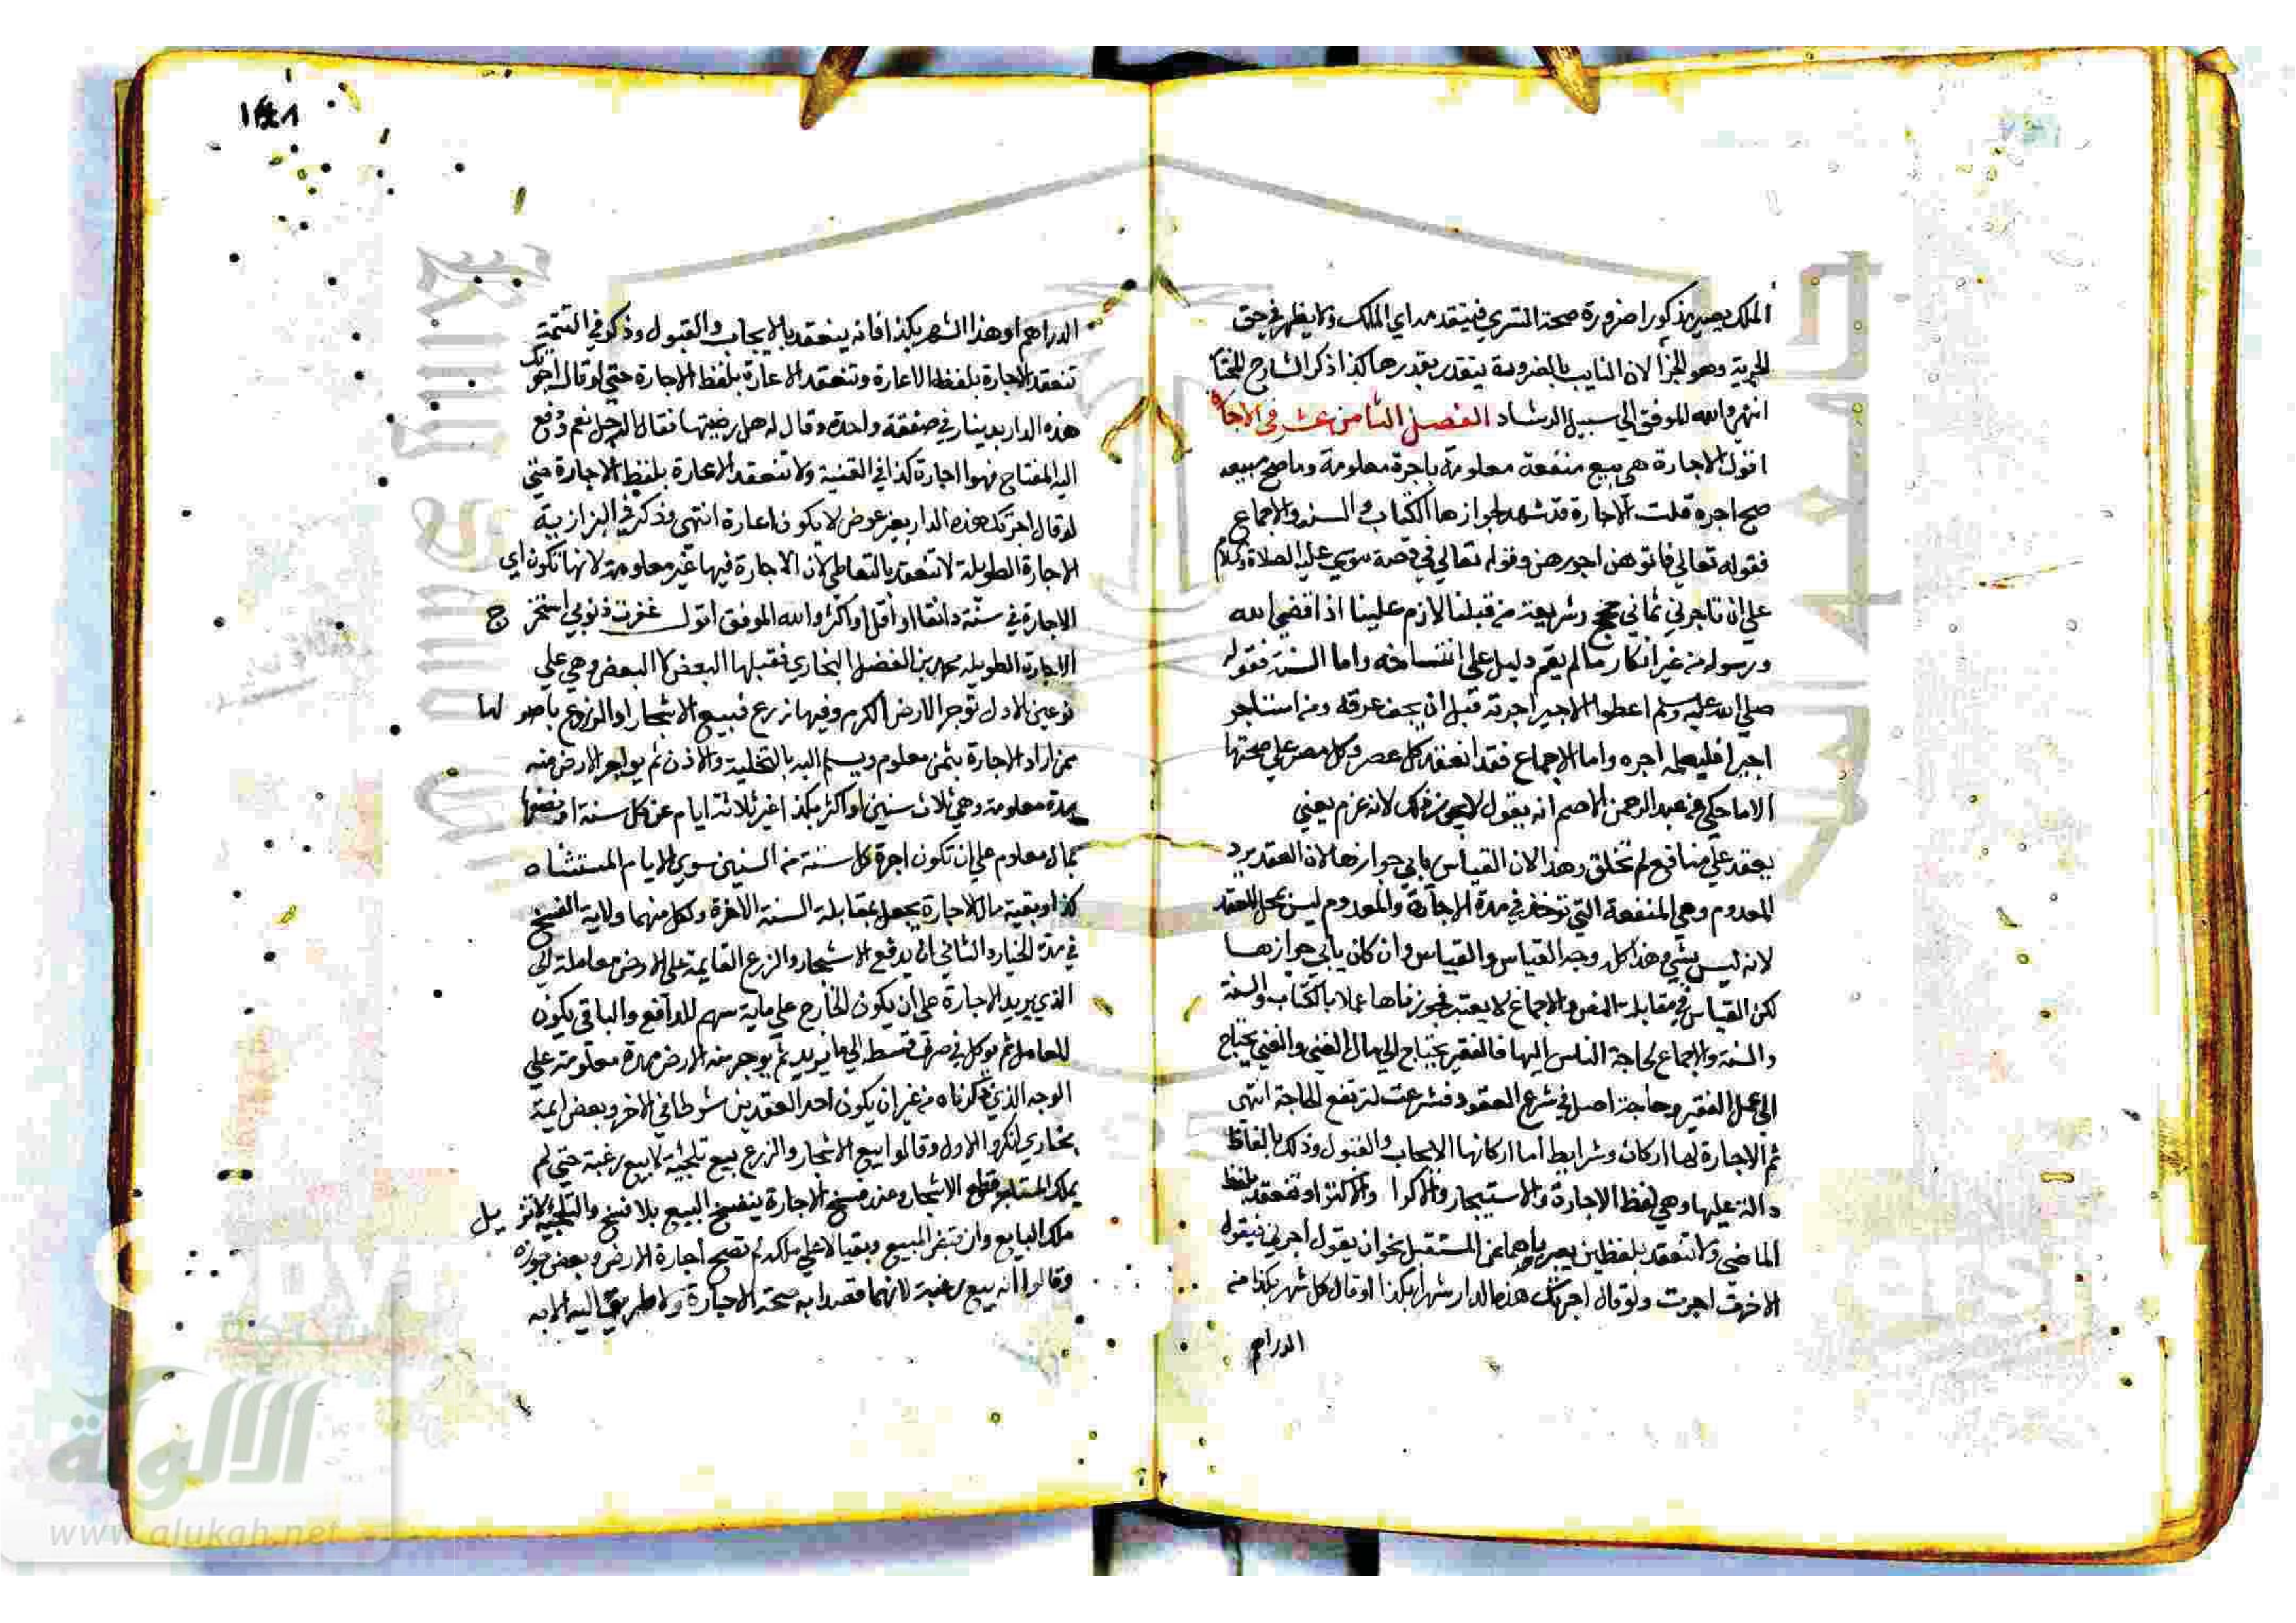 الملك يصير مذكورا ضرورة صحة التسري فيتقدر مداي الملك ولا يظهر في حق
الحرية وهو الجزا لان الثابت بالضرورة يتقدر بقدرها كذا ذكر الشارح للختا
انتهى والله الموفق الى سبيل الرشاد الفصل الثامن عشر في الاجارة
اقول الاجارة هي بيع منفعة معلومة باجرة معلومة وما صح مبيعه
صح اجره قلت الاجارة قد شهد لجوازها الكتاب والسنة والاجماع
فقوله تعالى فاتوهن اجورهن وقوله تعالى في قصة موسى عليه الصلاة والسلام
على ان تاجرني ثماني حجج وشريعة من قبلنا لازم علينا اذا قضى الله
ورسوله من غير انكار ما لم يقم دليل على انتساخه واما السنة فقوله
صلى الله عليه وسلم اعطوا الاجير اجرته قبل ان يجف عرقه ومن استاجر
اجيرا فليعلمه اجره واما الاجماع فقد انعقد كل عصر وكل مصر على صحتها
الا ما حكي عن عبد الرحمن الاصم انه يقول لا يجوز ذلك لانه غرم يعني
يعقد على منافع لم تخلق وهذا لان القياس يابى جوازها لان العقد يرد
المعدوم وهي المنفعة التي توخذ في مدة الاجارة والمعدوم ليس بمحل للعقد
لانه ليس بشي هذا كله وجه القياس والقياس وان كان يابى جوازها
لكن القياس في مقابلة النص والاجماع لا يعتبر فجوزناها عملا بالكتاب والسنة
والسنة والاجماع لحاجة الناس اليها فالفقير يحتاج الى مال الغني والغني يحتاج
الى عمل الفقير وحاجة اصل في شرع العقود فشرعت لترتفع الحاجة انتهى
ثم الاجارة لها اركان وشرايط اما اركانها الايجاب والقبول وذلك بالفاظ
دالة عليها وهي لفظ الاجارة والاستيجار والاكرا والاكترا وتنعقد بلفظ
الماضي ولا تنعقد بلفظين يعبر باحدهما عن المستقبل نحو ان يقول اجرني فيقول
الاخر اجرت ولو قال اجرتك هذه الدار شهرا بكذا او قال كل شهر بكذا من
الدراهم
١٤٨
الدراهم او هذا الشهر بكذا فانه ينعقد بالايجاب والقبول وذكر في التتمة
تنعقد الاجارة بلفظ الاعارة وتنعقد الاعارة بلفظ الاجارة حتى لو قال اجرتك
هذه الدار بدينار في صفقة واحدة وقال له هل رضيتها فقال الرجل نعم ودفع
اليه المفتاح فهوا اجارة كذا في القنية ولا تنعقد الاعارة بلفظ الاجارة حتى
لو قال اجرتك هذه الدار بغير عوض لا يكون اعارة انتهى وذكر في البزازية
الاجارة الطويلة لا تنعقد بالتعاطي لان الاجارة فيها غير معلومة لانها تكون اي
الاجارة في سنة دانقا او اقل او اكثر والله الموفق اقول غفرت ذنوبي استخرج
الاجارة الطويلة محمد بن الفضل البخاري فقبلها البعض لا البعض وهي على
نوعين الاول توجر الارض الكرم وفيها زرع فيبيع الاشجار او الزرع باصولها
ممن اراد الاجارة بثمن معلوم ويسلم اليه بالتخلية والاذن ثم يواجر الارض منه
مدة معلومة وهي ثلاث سنين او اكثر بكذا غير ثلاثة ايام عن كل سنة او نصفها
بمال معلوم على ان تكون اجرة كل سنة من السنين سوى الايام المستثناه
كذا وبقية مال الاجارة يجعل بمقابلة السنة الاخرة ولكل منهما ولاية الفسخ
في مدة الخيار والثاني ان يدفع الاشجار والزرع القايمة على الارض معاملة الى
الذي يريد الاجارة على ان يكون الخارج على ماية سهم للدافع والباقي يكون
للعامل ثم يوكل في صرف قسطه الى ما يريد ثم يوجر منه الارض مدة معلومة على
الوجه الذي ذكرناه من غير ان يكون احد العقدين شرطا في الاخر وبعض ايمة
بخارى انكروا الاول وقالوا بيع الاشجار والزرع بيع تلجئة لا بيع رغبة حتى لم
يملك المستاجر قطع الاشجار وعند فسخ الاجارة ينفسخ البيع بلا فسخ والتلجئة لا تزيل
ملك البايع وان تبقى المبيع وبقيا لا على ملكه لم تصح اجارة الارض وبعض جوزه
وقالوا انه بيع رغبة لانهما قصدا به صحة الاجارة ولا طريق اليه الا به